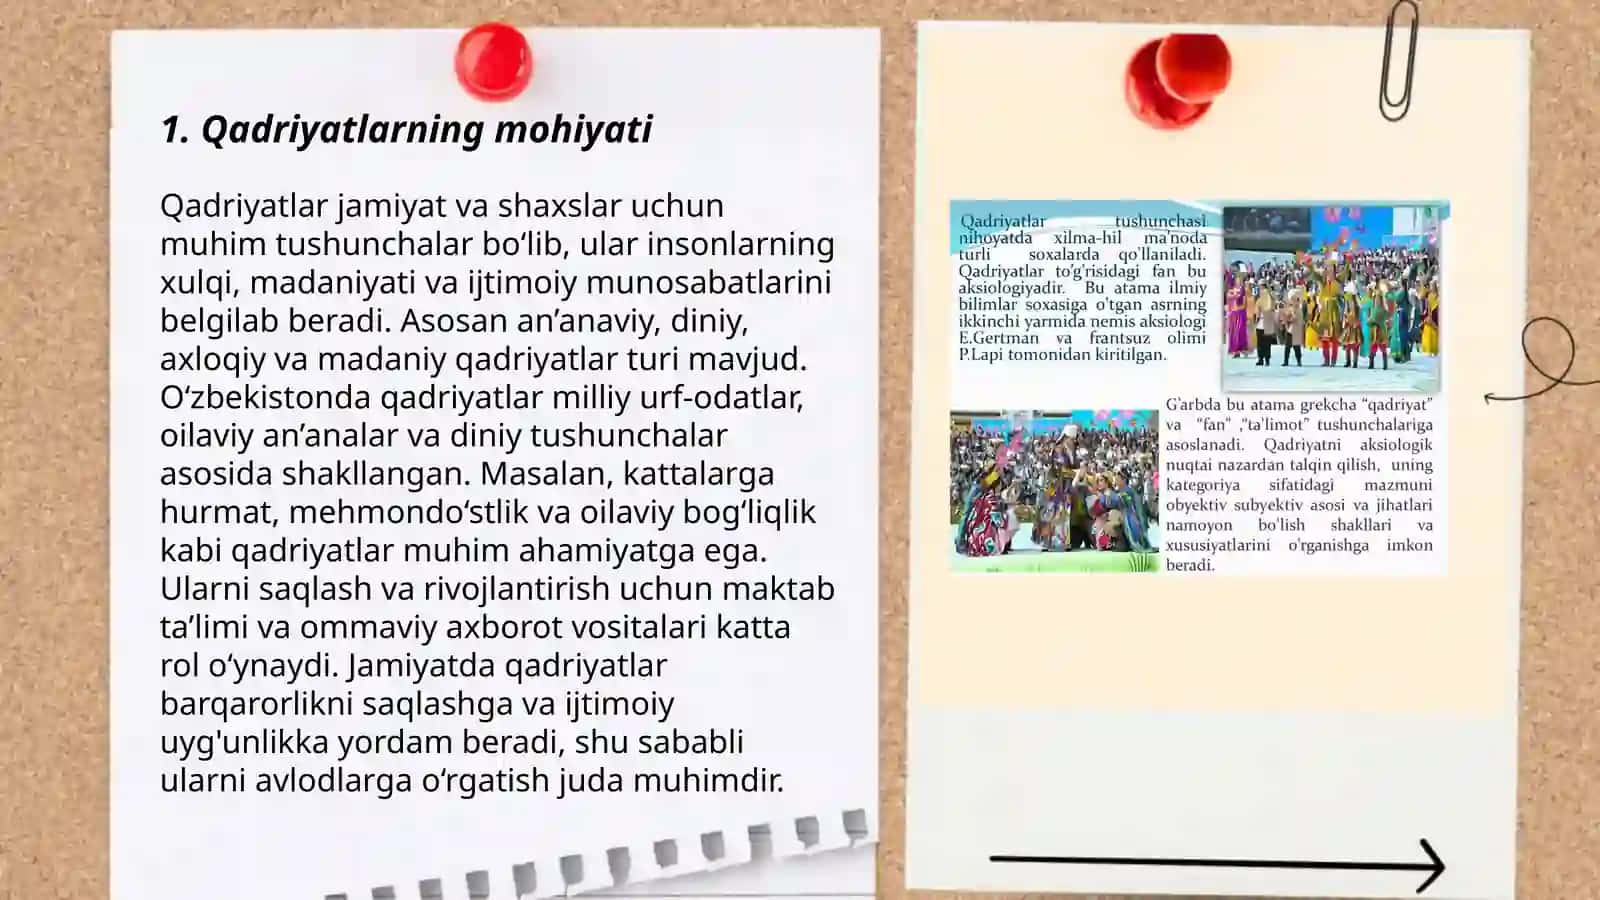 1. Qadriyatlarning mohiyati
Qadriyatlar jamiyat va shaxslar uchun
muhim tushunchalar bo‘lib, ular insonlarning
xulqi, madaniyati va ijtimoiy munosabatlarini
belgilab beradi. Asosan an’anaviy, diniy,
axloqiy va madaniy qadriyatlar turi mavjud.
O‘zbekistonda qadriyatlar milliy urf-odatlar,
oilaviy an’analar va diniy tushunchalar
asosida shakllangan. Masalan, kattalarga
hurmat, mehmondo‘stlik va oilaviy bog‘liqlik
kabi qadriyatlar muhim ahamiyatga ega.
Ularni saqlash va rivojlantirish uchun maktab
ta’limi va ommaviy axborot vositalari katta
rol o‘ynaydi. Jamiyatda qadriyatlar
barqarorlikni saqlashga va ijtimoiy
uyg'unlikka yordam beradi, shu sababli
ularni avlodlarga o‘rgatish juda muhimdir.
Qadriyatlar tushunchasi
nihoyatda xilma-hil ma'noda
turli soxalarda qo'llaniladi.
Qadriyatlar to'g'risidagi fan bu
aksiologiyadir. Bu atama ilmiy
bilimlar soxasiga o'tgan asrning
ikkinchi yarmida nemis aksiologi
E.Gertman va frantsuz olimi
P.Lapi tomonidan kiritilgan.
G'arbda bu atama grekcha “qadriyat”
va “fan” ,“ta'limot” tushunchalariga
asoslanadi. Qadriyatni aksiologik
nuqtai nazardan talqin qilish, uning
kategoriya sifatidagi mazmuni
obyektiv subyektiv asosi va jihatlari
namoyon bo'lish shakllari va
xususiyatlarini o'rganishga imkon
beradi.